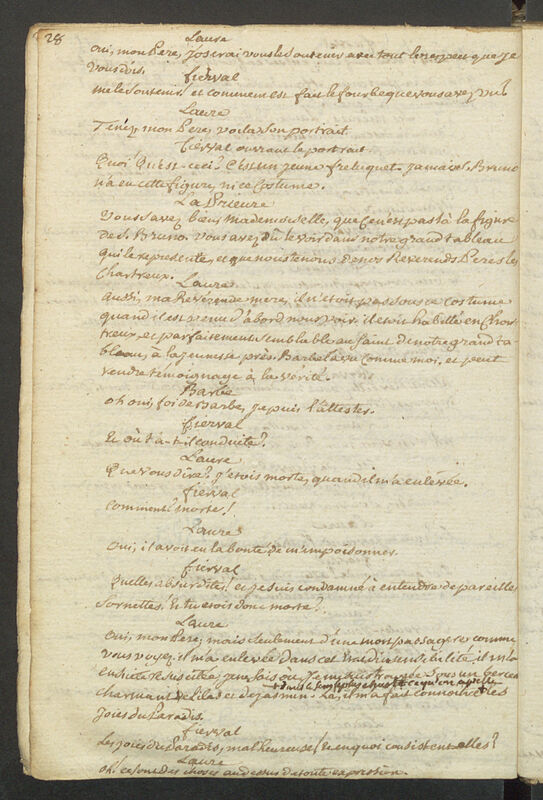 28
Laure
oui, mon Pere, j'oserai vous le soutenir avec tout le respect que je
vous dois.
fierval
me le soutenir! et comment est fait le fourbe que vous avez vu?
Laure
Tenez, mon Pere, voila son portrait
fierval ouvrant le portrait.
Quoi! Qu'est-ceci? C'est un jeune freluquet. jamais S. Bruno
n'a eu cette figure, ni ce Costume.
La Prieure
Vous savez bien, Mademoiselle, que ce n'est pas là la figure
de S. Bruno. vous avez dû le voir dans notre grand tableau
qui le represente, et que nous tenons de nos Reverends Peres les
Chartreux.
Laure
Aussi, ma Reverende mere, il n'étoit pas sous ce costume
quand il est venu d'abord nous voir. il etoit habillé en Char-
treux, et parfaitement semblable au saint de notre grand ta
bleau, à la jeunesse près. Barbe l'a vu comme moi, et peut
rendre témoignage à la vérité.
Barbe
oh oui, foi de Barbe, je puis l'attester.
fierval
Et où t'a-t-il conduite?
Laure
Que vous dire? j'etois morte, quand il m'a enlevée.
fierval
Comment! morte!
Laure
Oui, il avoit eu la bonté de m'empoisonner.
fierval
Quelles absurdités! et je suis condamné à entendre de pareilles
sornettes. Et tu etois donc morte?
Laure
Oui, mon Pere, mais seulement d'une mort passagere comme
vous voyez. il m'a enlevée dans cet etat d'insensibilité, il m'a
ensuite ressuscitée, je ne sais où. Je me suis trouvée sous un berceau
charmant de lilas et de jasmin. Là, il m'a fait connoitre les
joies du Paradis.
fierval
Les joies du Paradis, malheureuse! Et en quoi consistent-elles?
Laure
oh! ce sont des choses au dessus de toute expression.